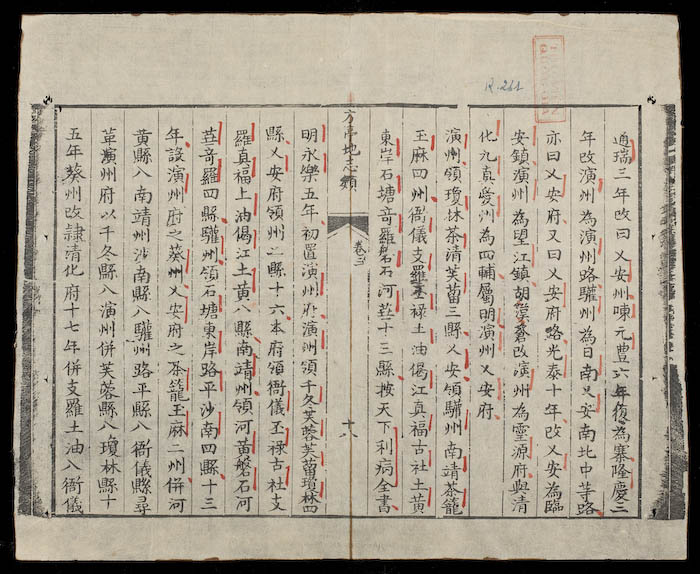 R.261
通瑞三年改曰乂安州陳元豊六年復為寨隆慶三
年改演州為演州路驩州為日南乂安南北中等路
亦曰乂安府又曰乂安府路光泰十年改乂安為臨
安鎮演州為望江鎮胡漢蒼改演州為靈源府與清
化九真愛州為四輔屬明演州乂安府
演州領瓊林茶清芙蒥三縣乂安領驩州南靖茶籠
玉麻四州衙儀支羅丕禄土油偈江真福古社土黄
東岸石塘竒羅磐石河荁十三縣按天下利病全書
方亭地志類 卷三 十八
明永樂五年初置演州府演州領千冬芙蓉芙蒥瓊林四
縣乂安府領州二縣十六本府領衙儀丕禄古社支
羅真福土油偈江土黄八縣南靖州領河黄磐石河
荁竒羅四縣驩州領石塘東岸路平沙南四縣十三
年設演州府之葵州乂安府之茶籠玉麻二州併河
黄縣入南靖州沙南縣入驩州路平縣入衙儀縣尋
革演州府以千冬縣入演州併芙蓉縣入瓊林縣十
五年葵州改隸清化府十七年併支羅土油入衙儀